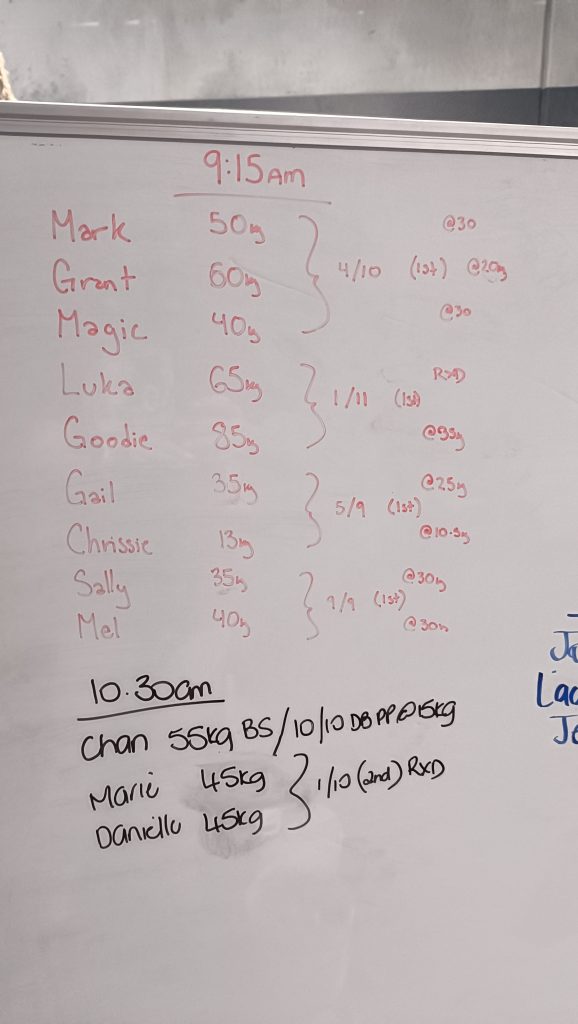 9:15AM
Mark 50kg @30
Grant 60kg 4/10 (1st) @20kg
Magic 40kg @30
Luka 65kg RXD
1/11 (1st)
Goodie 85kg
Gail 35kg @25kg
5/9 (1st)
Chrissie 13kg @10.5kg
Sally 35kg @30kg
9/9 (1st)
Mel 40kg @30kg
10.30am
Chan 55kg BS/10/10 DB PP@15kg
Marie 45kg
1/10 (2nd) RXD
Danielle 45kg
Lac